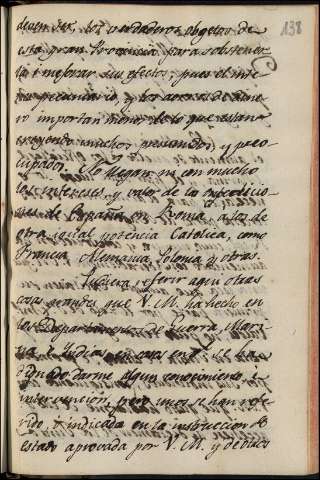 138
deven ser los verdaderos objetos de
esta gran Provincia para sobstener
la i mejorar sus efectos, pues el inte
res pecuniario, y los acoras de dine
ro importan menos de lo que estan
creyendo muchos presumidos, y preo
cupados. No llegan ni con mucho
los intereses, y valor de la expedicio
nes de España en Roma, a los de
otra igual potencia Catolica, como
Francia Alemania, Polonia, y otras.
Quisiera referir aqui otras
cosas grandes que V. M. ha hecho en
los Departamentos de Guerra, Mari
na, Indias, en que se ha
dignado darme algun conocimiento, e
intervencion, pero unos se han refe
rido, o indicado en la instruccion de
Estado aprovada por V. M. y de otros